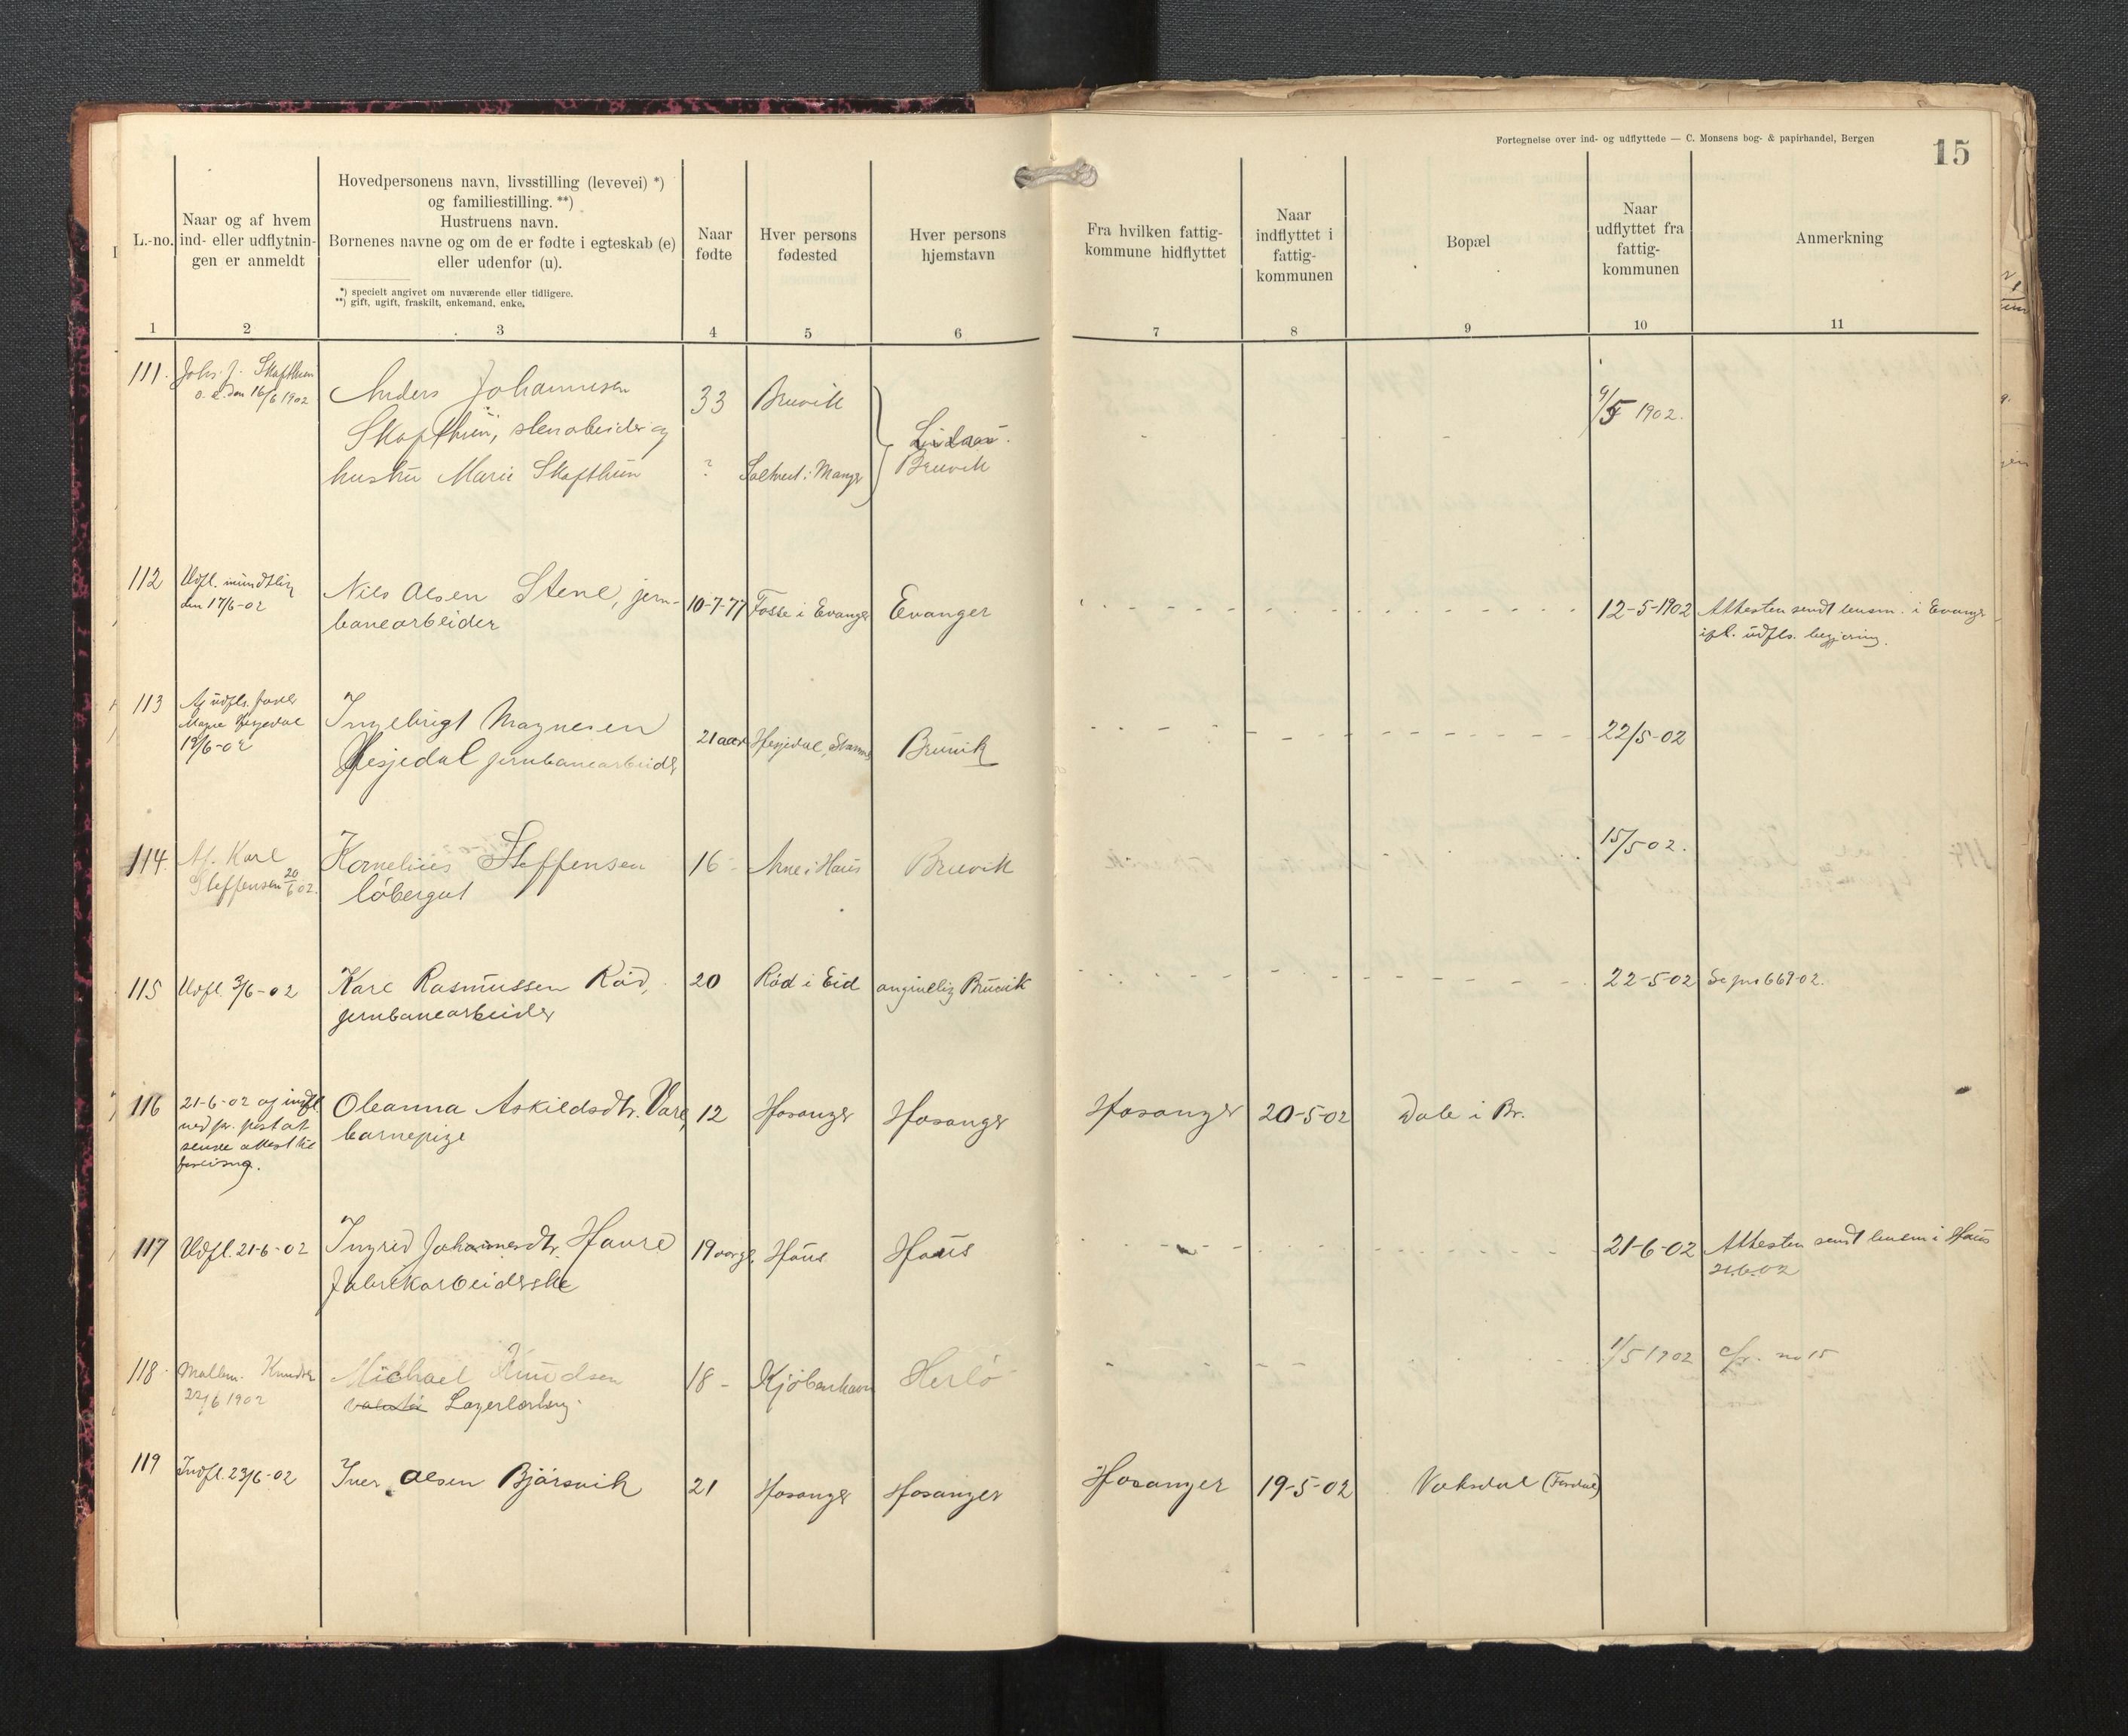 Fortegnelse over ind- og udflyttede — C. Monsens bog- & papirhandel, Bergen
15
L.-no.
Naar og af hvem
ind- eller udflytnin-
gen er anmeldt
Hovedpersonens navn, livsstilling (levevei) *)
og familiestilling. **)
Hustruens navn.
Børnenes navne og om de er fødte i egteskab (e)
eller udenfor (u).
*) specielt angivet om nuværende eller tidligere.
**) gift, ugift, fraskilt, enkemand, enke.
Naar
fødte
Hver persons
fødested
Hver persons
hjemstavn
Fra hvilken fattig-
kommune hidflyttet
Naar
indflyttet i
fattig-
kommunen
Bopæl
Naar
udflyttet fra
fattig-
kommunen
Anmerkning
1 2 3 4 5 6 7 8 9 10 11
111. Johs. J. Skafthun
den 16/6 1902
Anders Johannesen
Skafthun, stenarbeider og
hustru Marie Skafthun
33 Bruvik
? i Mange
Lindaas.
Bruvik
9/5 1902.
112 Udfl. mundtlig
den 17/6-02
Nils Olsen Stene, jern-
banearbeider
10-7-77 Fosse i Evanger Evanger 12-5-1902 Attesten sendt lensm. i Evanger
ifl. udfls. begjæring.
113 Af udfls. fader
Magne Hesjedal
19/6-02
Ingebrigt Magnesen
Hesjedal jernbanearbeider
21 aar Hesjedal, Bruvik 22/5-02
114 Af. Karl
Steffensen 20/6 02.
Kornelius Steffensen
løbergut
16 Arne i Haus Bruvik 15/5 02.
115 Udfl. 3/6-02 Karl Rasmussen Röd,
jernbanearbeider
20 Röd i Eid angivelig Bruvik 22-5-02 Se jno 669-02.
116 21-6-02 af indfl.
ved pr. post at
sende attest til
Oleanna Askildsdtr.
barnepige
12 Hosanger Hosanger Hosanger 20-5-02 Dale i Br.
117 Udfl. 21-6-02 Ingrid Johannesdtr. Haure
Fabrikarbeiderske
19 aar gl. Haus Haus 21-6-02 Attesten sendt lensm i Haus
21.6.02
118. Knudsen
22/6 1902
Michael Knudsen
Lagerlærling.
18 - Kjöbenhavn Herlö 1/5 1902 cfr. no 15
119 Indfl. 23/6-02 Iver Olsen Bjørsvik 21 Hosanger Hosanger Hosanger 19-5-02 Vaksdal